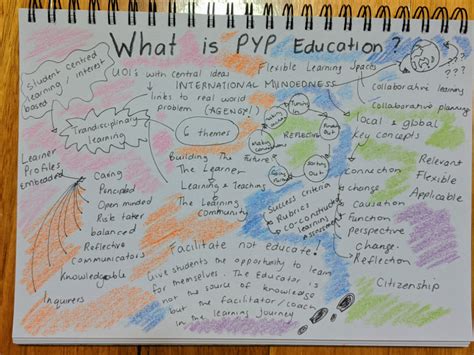 What is PYP Education?
Student centred
learning / interest
based
UOI's with central ideas
INTERNATIONAL MINDEDNESS
links to real world
problem (AGENCY!)
Flexible Learning Spaces
???
collaborative learning
collaborative planning
Trandisciplinary
learning
6 themes
Tuning
In
Finding
Out
Sorting
Out
Going
Making
REFLECTION
local & global
key concepts
Learner
Profiles
Embedded
Caring
Principled
Open minded
Risk taker
balanced
Reflective
Communicators
Knowledgable
Inquirers
Building The
Future
The Learner
Learning & Teaching
The Learning
Community
Success criteria
Rubric
co-constructed
learning
assessment
connection
change
Causation
Function
perspective
Change
Reflection
Relevant
Flexible
Applicable
Citizenship
Facilitate not educate!
Give students the opportunity to learn
for themselves. The Educator is
not the source of knowledge
but the facilitator/coach
in the learning journey